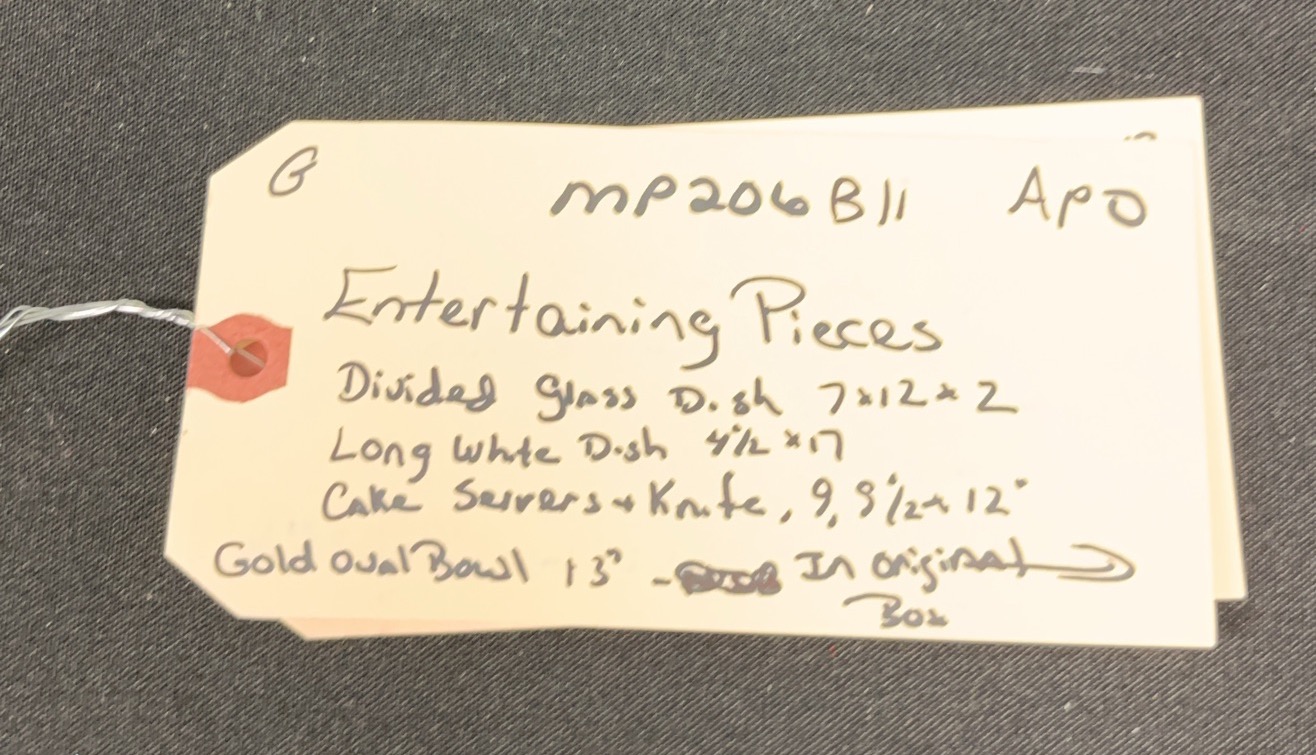 G MP206 B11 APO
Entertaining Pieces
Divided Glass Dish 7x12x2
Long White Dish 4½ x 17
Cake Servers + Knife, 9, 9½ + 12"
Gold Oval Bowl 13" - In original
Box